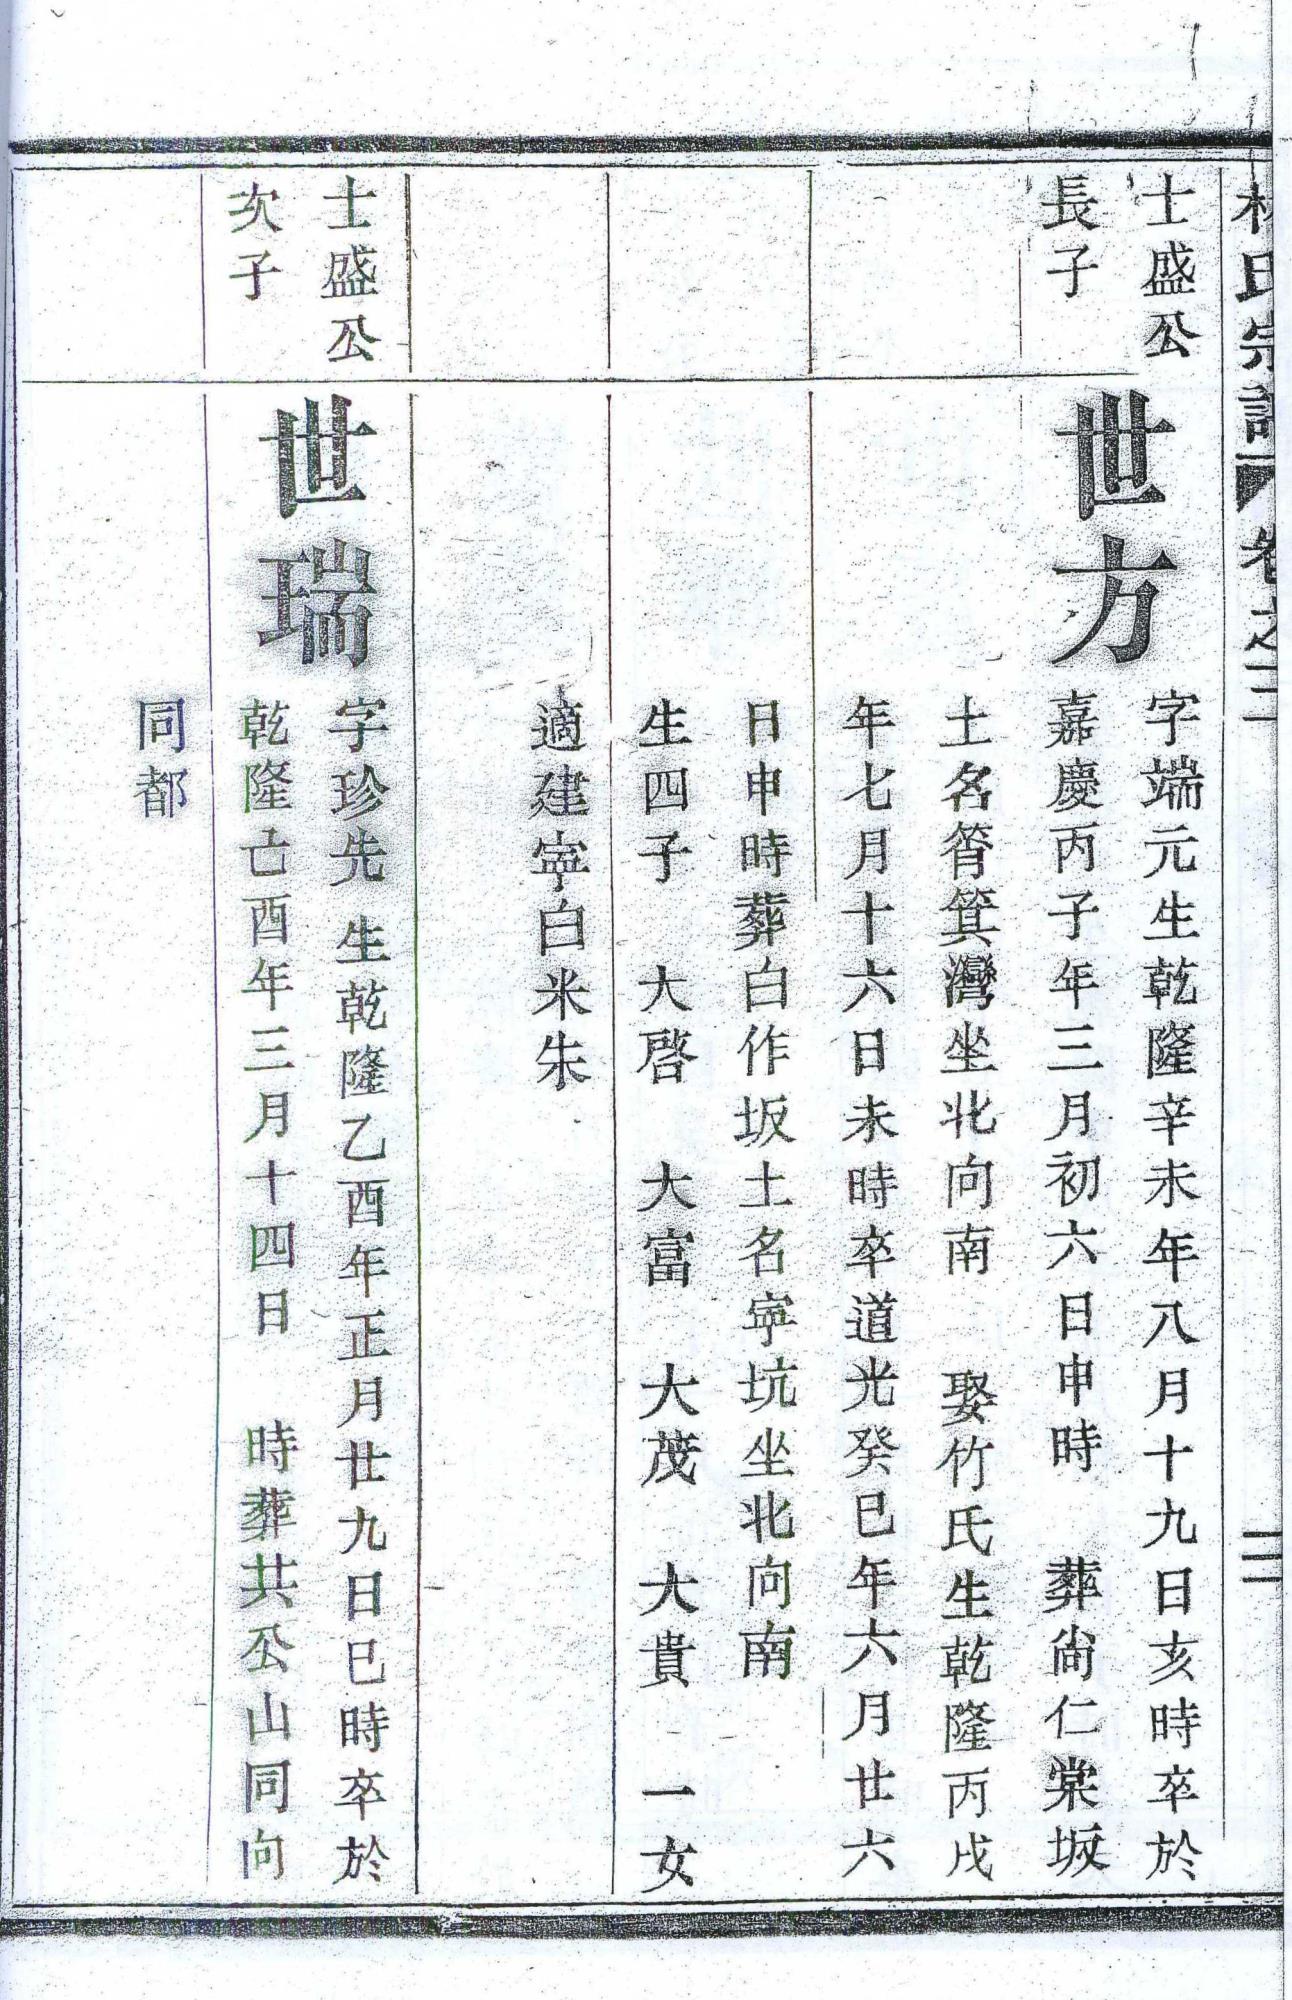 林氏宗譜 卷之二 二
士盛公
長子
世方
字端元生乾隆辛未年八月十九日亥時卒於
嘉慶丙子年三月初六日申時 葬尚仁棠坂
土名筲箕灣坐北向南 娶竹氏生乾隆丙戌
年七月十六日未時卒道光癸巳年六月廿六
日申時葬白作坂土名寧坑坐北向南
生四子 大啓 大富 大茂 大貴 一女
適建寧白米朱
士盛公
次子
世瑞
字珍先 生乾隆乙酉年正月廿九日巳時卒於
乾隆己酉年三月十四日 時葬共公山同向
同都